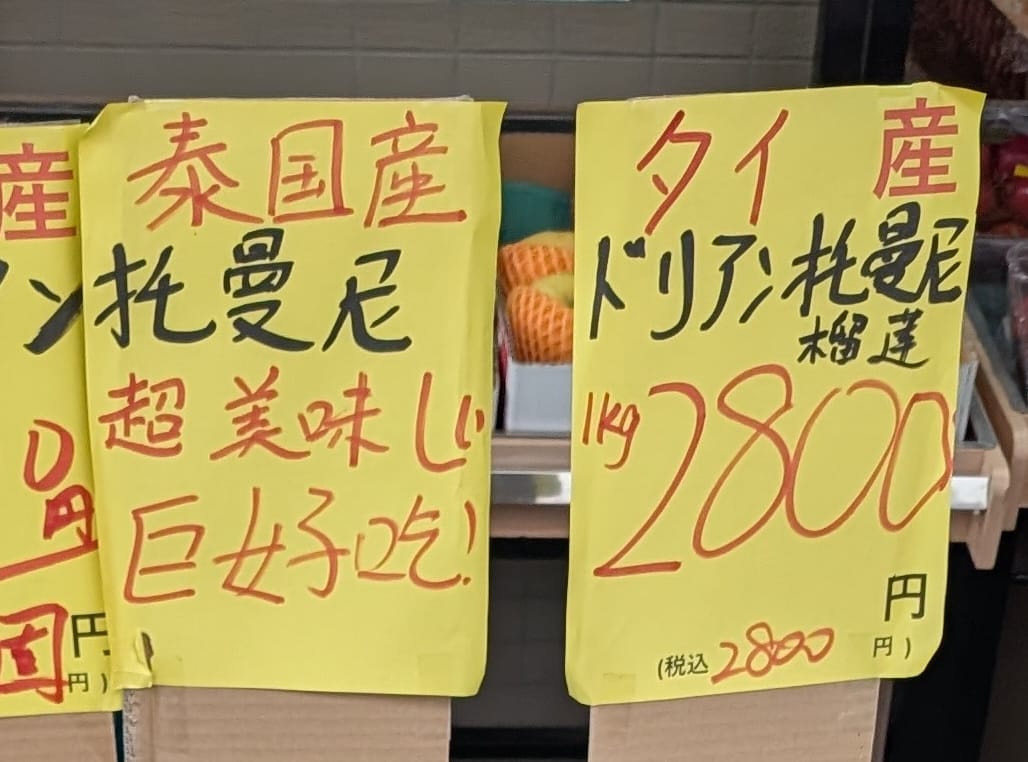 産
ン
0
円
円
円)
泰国産
托曼尼
超美味しい
巨好吃!
タイ産
ドリアン托曼尼
榴莲
1kg 2800
円
(税込 2800 円)